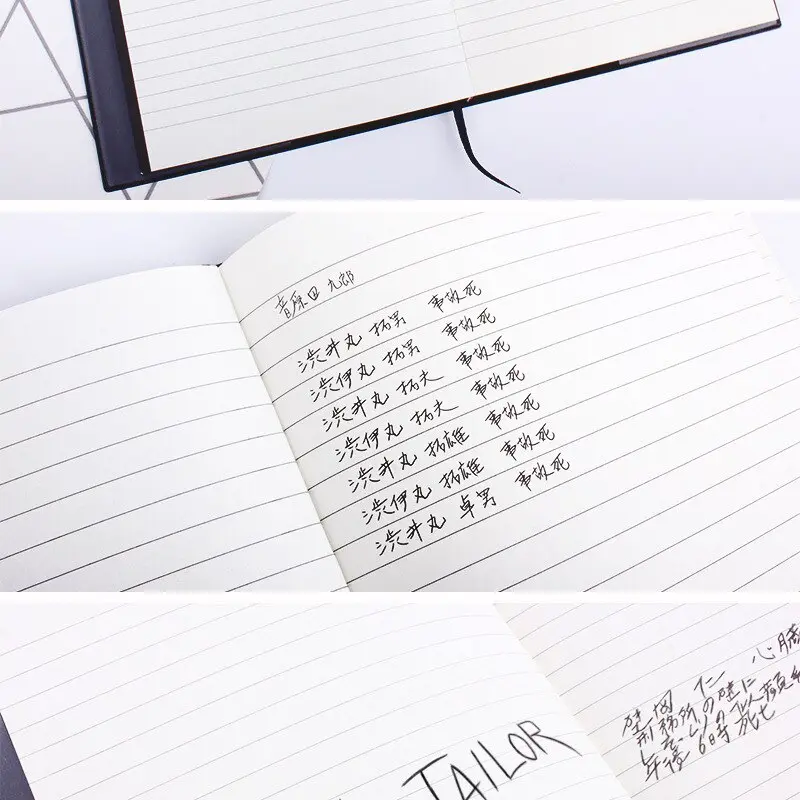 音原田 九郎
渋井丸 拓男 事故死
渋伊丸 拓男 事故死
渋井丸 拓夫 事故死
渋伊丸 拓夫 事故死
渋井丸 拓雄 事故死
渋伊丸 拓雄 事故死
渋井丸 卓男 事故死
TAILOR
心臓
刑務所の壁に
6時 死亡